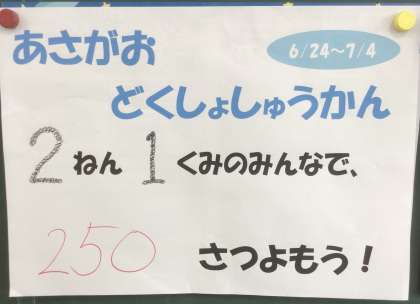 あさがお
6/24～7/4
どくしょしゅうかん
2ねん1くみのみんなで、
250さつよもう！